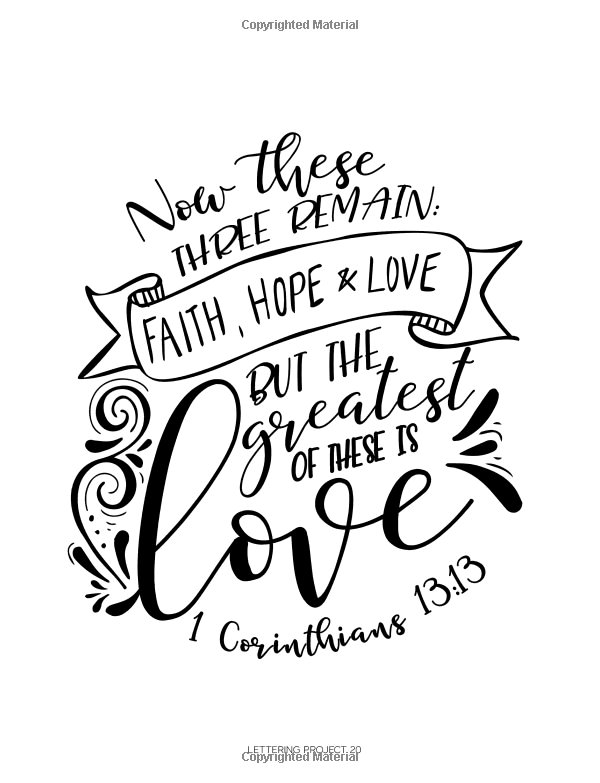 Copyrighted Material
Now these
THREE REMAIN:
FAITH, HOPE & LOVE
BUT THE
greatest
OF THESE IS
love
1 Corinthians 13:13
LETTERING PROJECT 20
Copyrighted Material